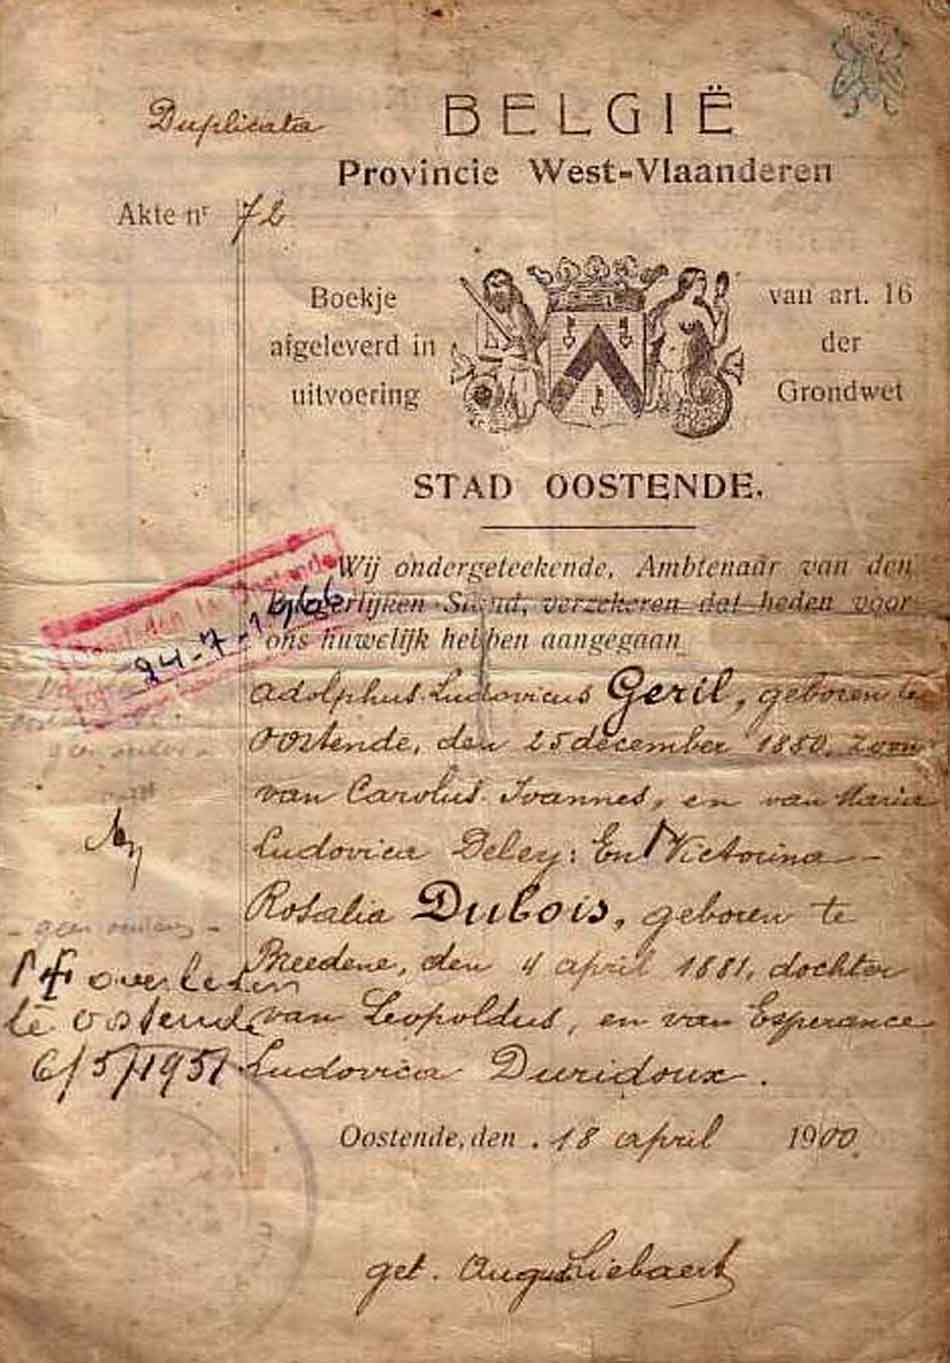 Duplicata
BELGIË
Provincie West-Vlaanderen
Akte nr 72
Boekje
afgeleverd in
uitvoering
van art. 16
der
Grondwet
STAD OOSTENDE.
Wij ondergeteekende, Ambtenaar van den
Burgerlijken Stand, verzekeren dat heden voor
ons huwelijk hebben aangegaan
Overleden te Oostende
24-7-1946
Adolphus Ludovicus Geril, geboren te
Oostende, den 25 december 1850. zoon
van Carolus Ioannes, en van Maria
Ludovica Deley: En Victorina
Rosalia Dubois, geboren te
Breedene, den 4 april 1881, dochter
van Leopoldus, en van Esperance
Ludovica Duridoux.
overleden
te oostende
6/5/1951
Oostende, den 18 april 1900.
get. Aug. Liebaert